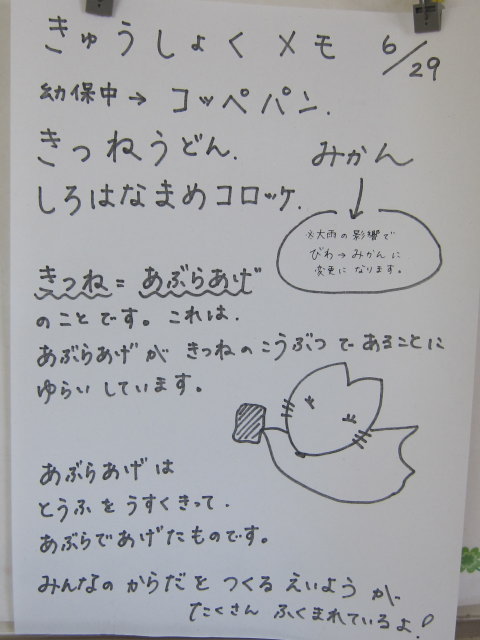 きゅうしょくメモ 6/29
幼保中→ コッペパン.
きつねうどん. みかん
しろはなまめコロッケ.
※大雨の影響で
びわ→みかんに
変更になります。
きつね=あぶらあげ
のことです。これは.
あぶらあげが きつねのこうぶつであることに
ゆらいしています。
あぶらあげは
とうふを うすくきって.
あぶらであげたものです。
みんなの からだを つくる えいようが
たくさん ふくまれているよ!